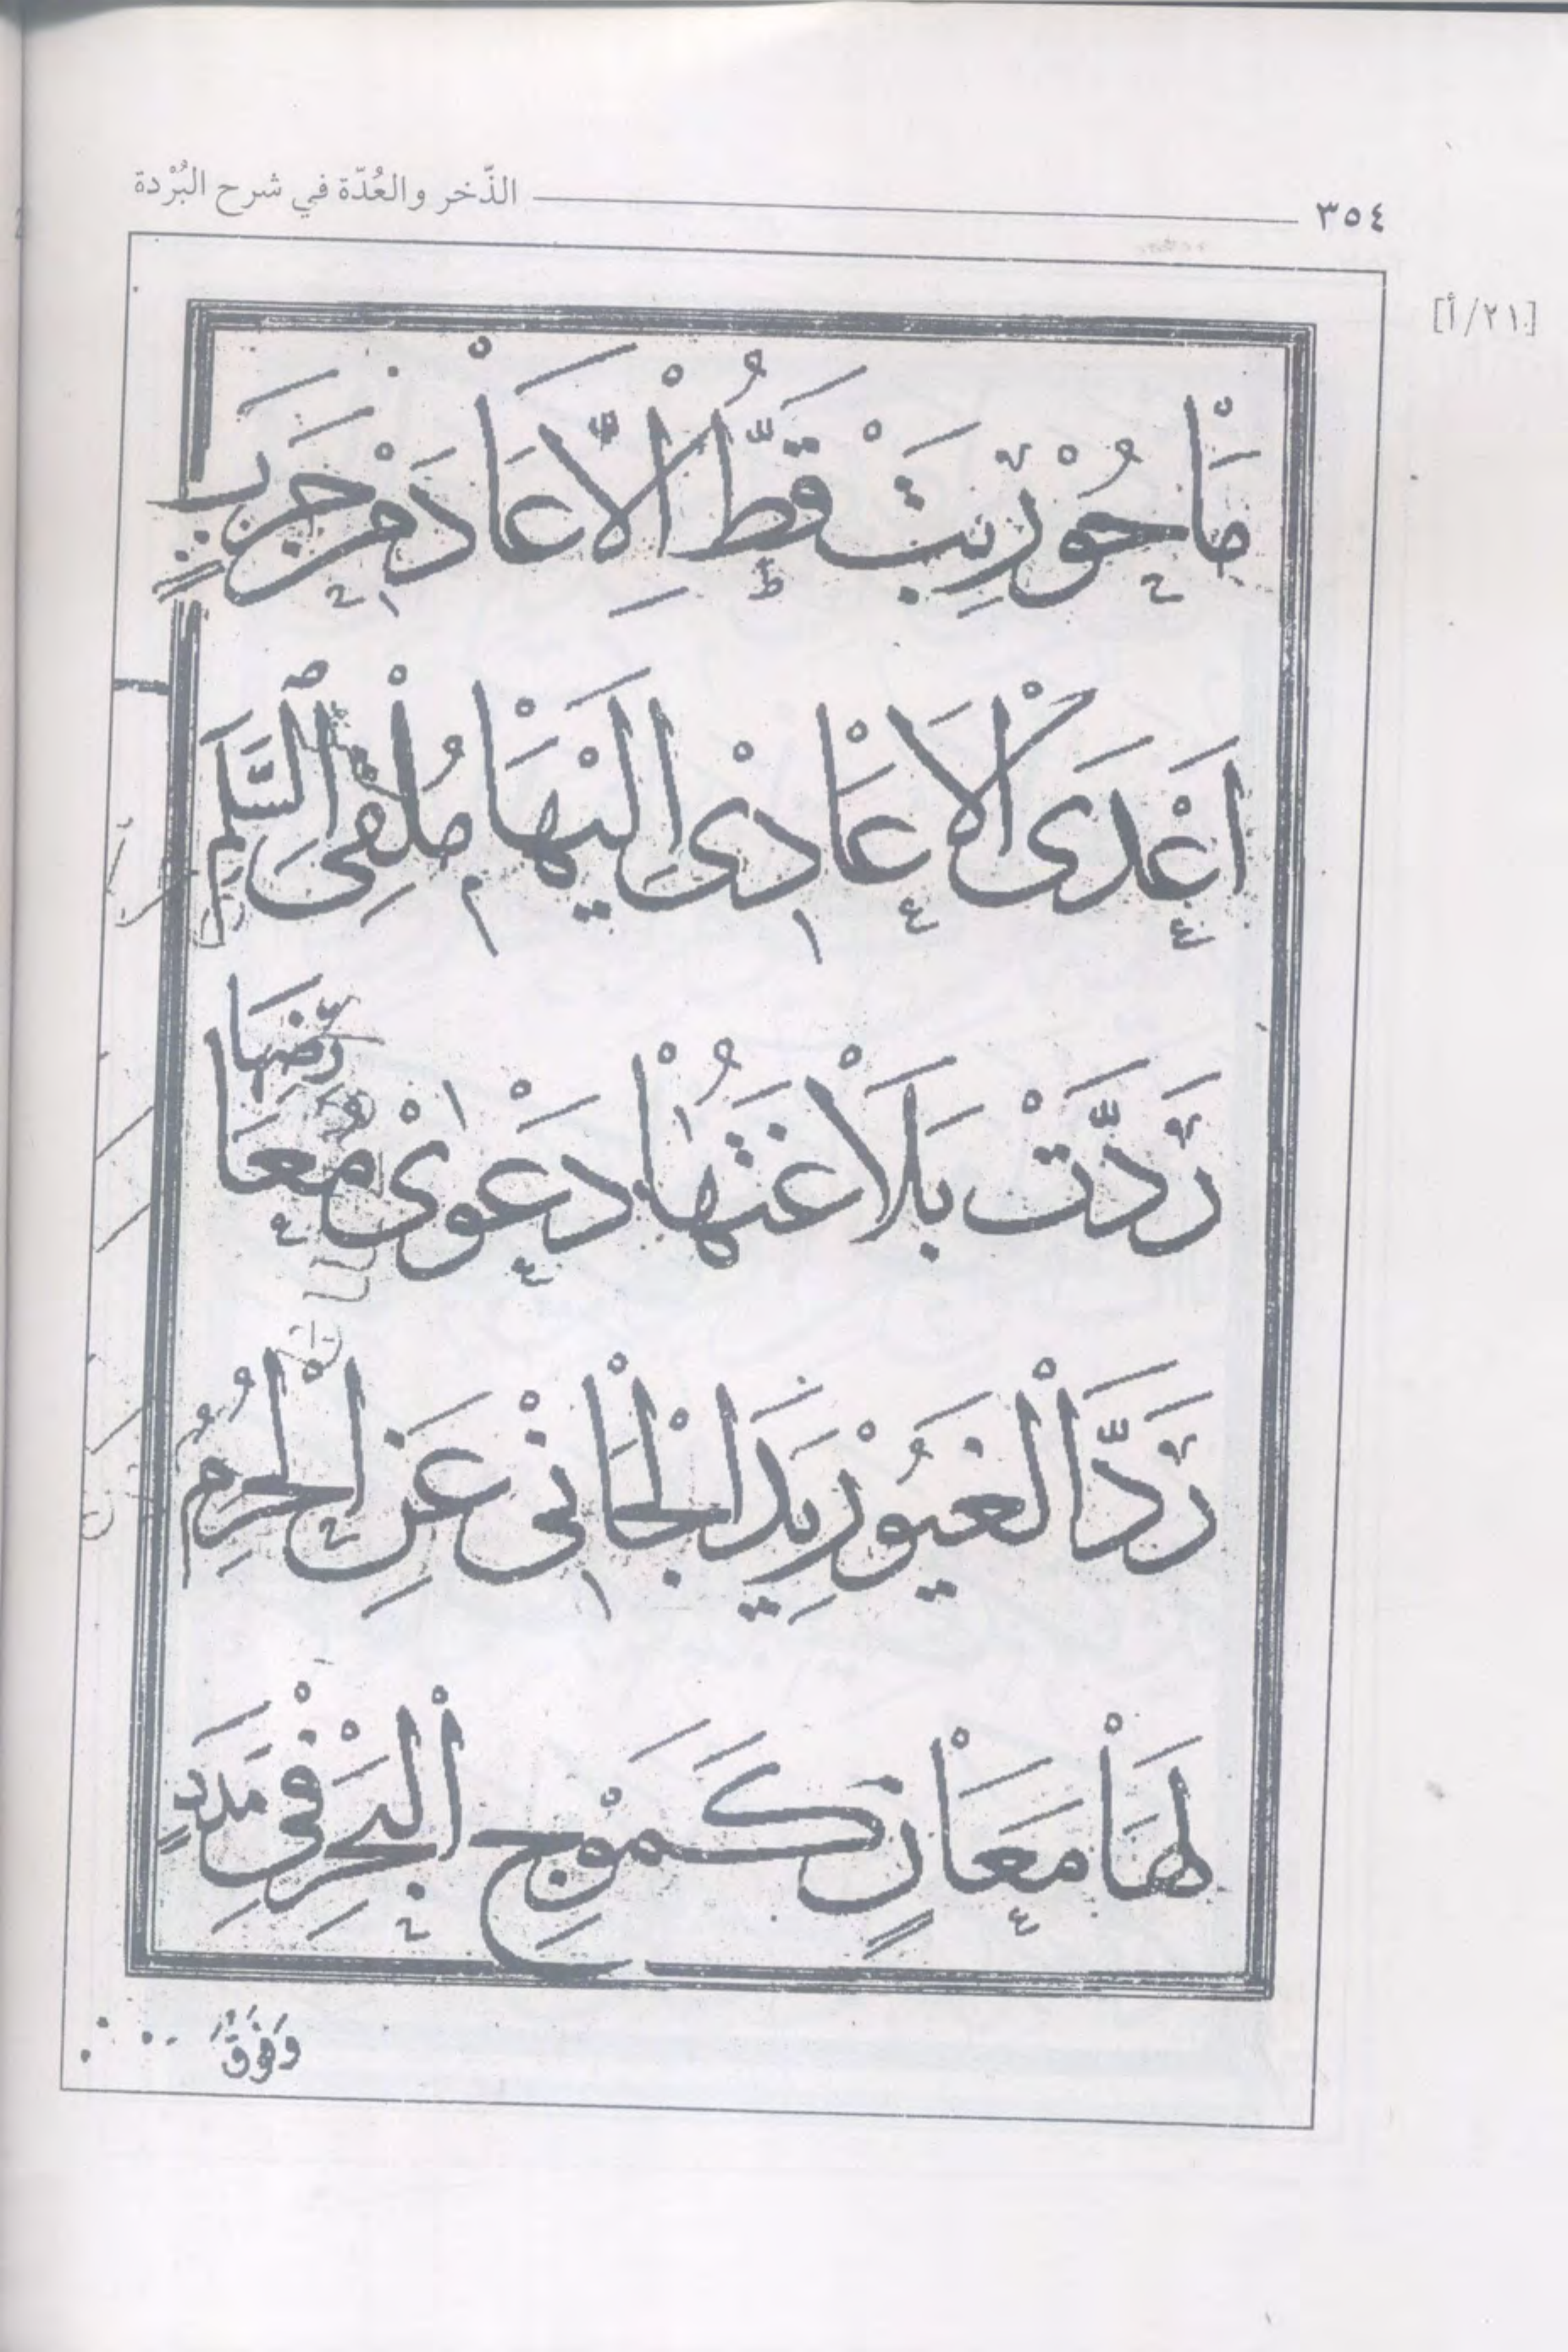 ٣٥٤ الذّخر والعُدّة في شرح البُرْدة
[٢١/أ]
مَاْ حُوْرِبَتْ قَطُّ اِلَّا عَاْدَ مِنْ حَرَبٍ
اَعْدَى الْاَعَاْدِىْ اِلَيْهَاْ مُلْقِىَ السَّلَمِ
رَدَّتْ بَلَاْغَتُهَاْ دَعْوٰىْ مُعَاْرِضِهَاْ
رَدَّ الْغَيُوْرِ يَدَ الْجَاْنِىْ عَنِ الْحُرَمِ
لَهَاْ مَعَاْنٍ كَمَوْجِ الْبَحْرِ فِىْ مَدَدٍ
وَفَوْقَ